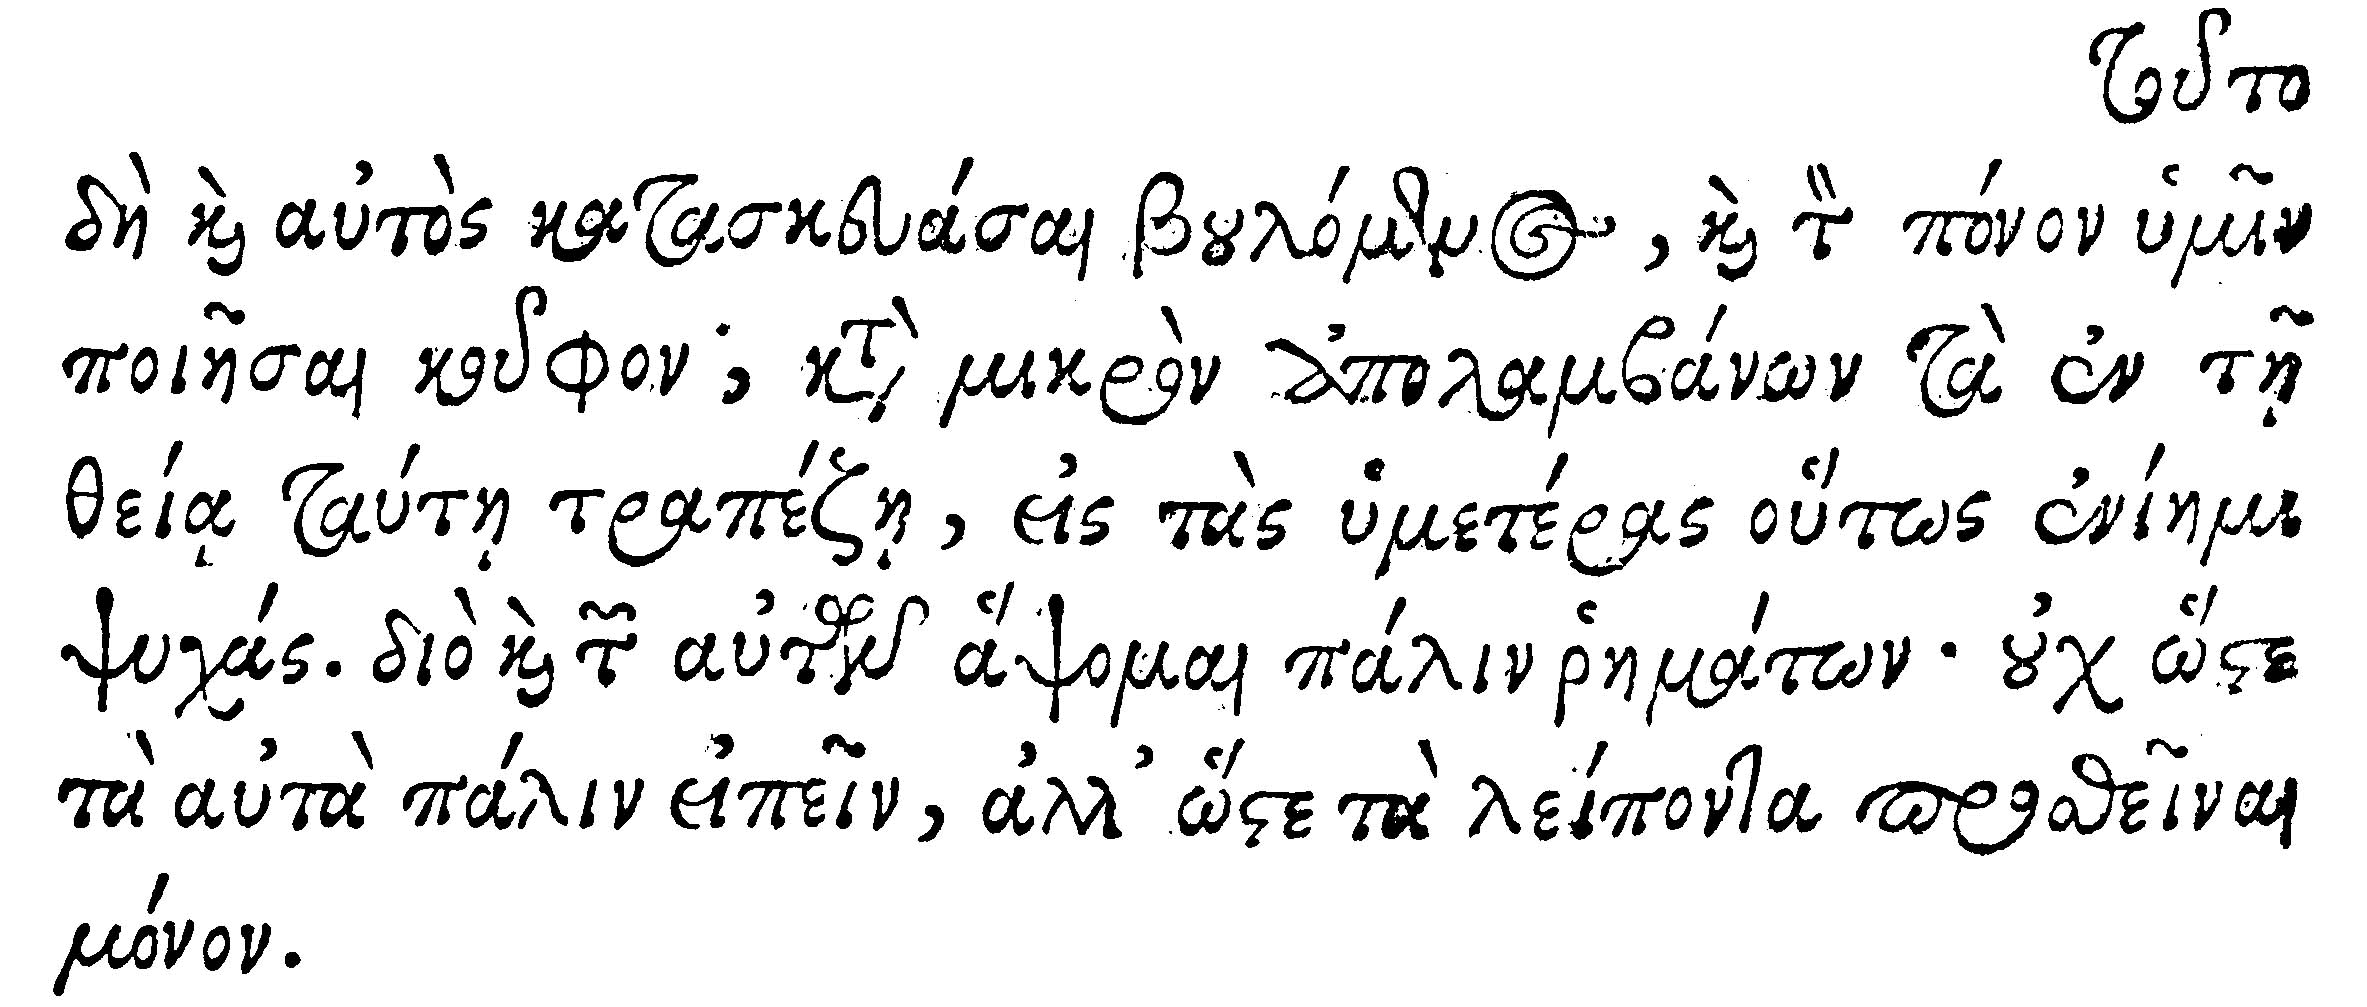 τοῦτο
δὴ καὶ αὐτὸς κατασκευάσαι βουλόμενος, καὶ τὸν πόνον ὑμῖν
ποιῆσαι κοῦφον, κατὰ μικρὸν ἀπολαμβάνων τὰ ἐν τῇ
θείᾳ ταύτῃ τραπέζῃ, εἰς τὰς ὑμετέρας οὕτως ἐνίημι
ψυχάς. διὸ καὶ τῶν αὐτῶν ἅψομαι πάλιν ῥημάτων· οὐχ ὥστε
τὰ αὐτὰ πάλιν εἰπεῖν, ἀλλ’ ὥστε τὰ λείποντα προσθεῖναι
μόνον.